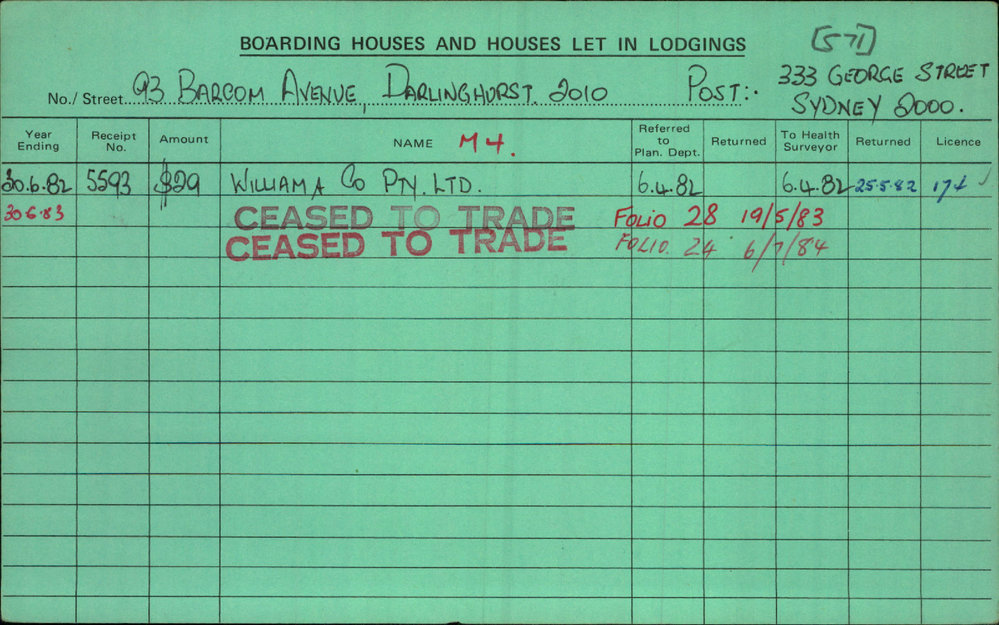 BOARDING HOUSES AND HOUSES LET IN LODGINGS [571]
No./Street 93 BARCOM AVENUE, DARLINGHURST. 2010 POST:- 333 GEORGE STREET
SYDNEY 2000.
Year Ending Receipt No. Amount NAME M4. Referred to Plan. Dept. Returned To Health Surveyor Returned Licence
30.6.82 5593 $29 WILLIAM A Co PTY. LTD. 6.4.82 6.4.82 25.5.82 174 ✓
30.6.83 CEASED TO TRADE FOLIO 28 19/5/83
CEASED TO TRADE FOLIO. 24 6/7/84